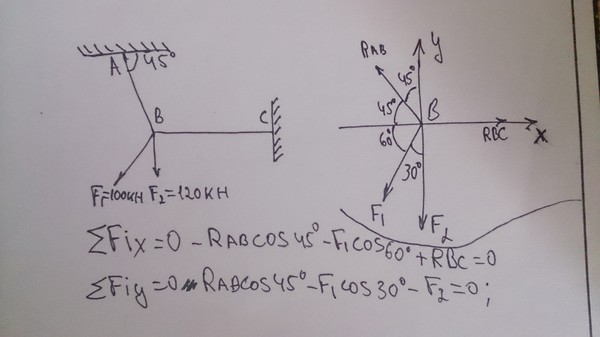 A 45°
B
C
F₁=100КН F₂=120КН
RAB
y
45°
45°
B
60°
RBC
x
30°
F₁
F₂
ΣFix=0 -RABCOS45°-F₁COS60°+RBC=0
ΣFiy=0 RABCOS45°-F₁COS30°-F₂=0;